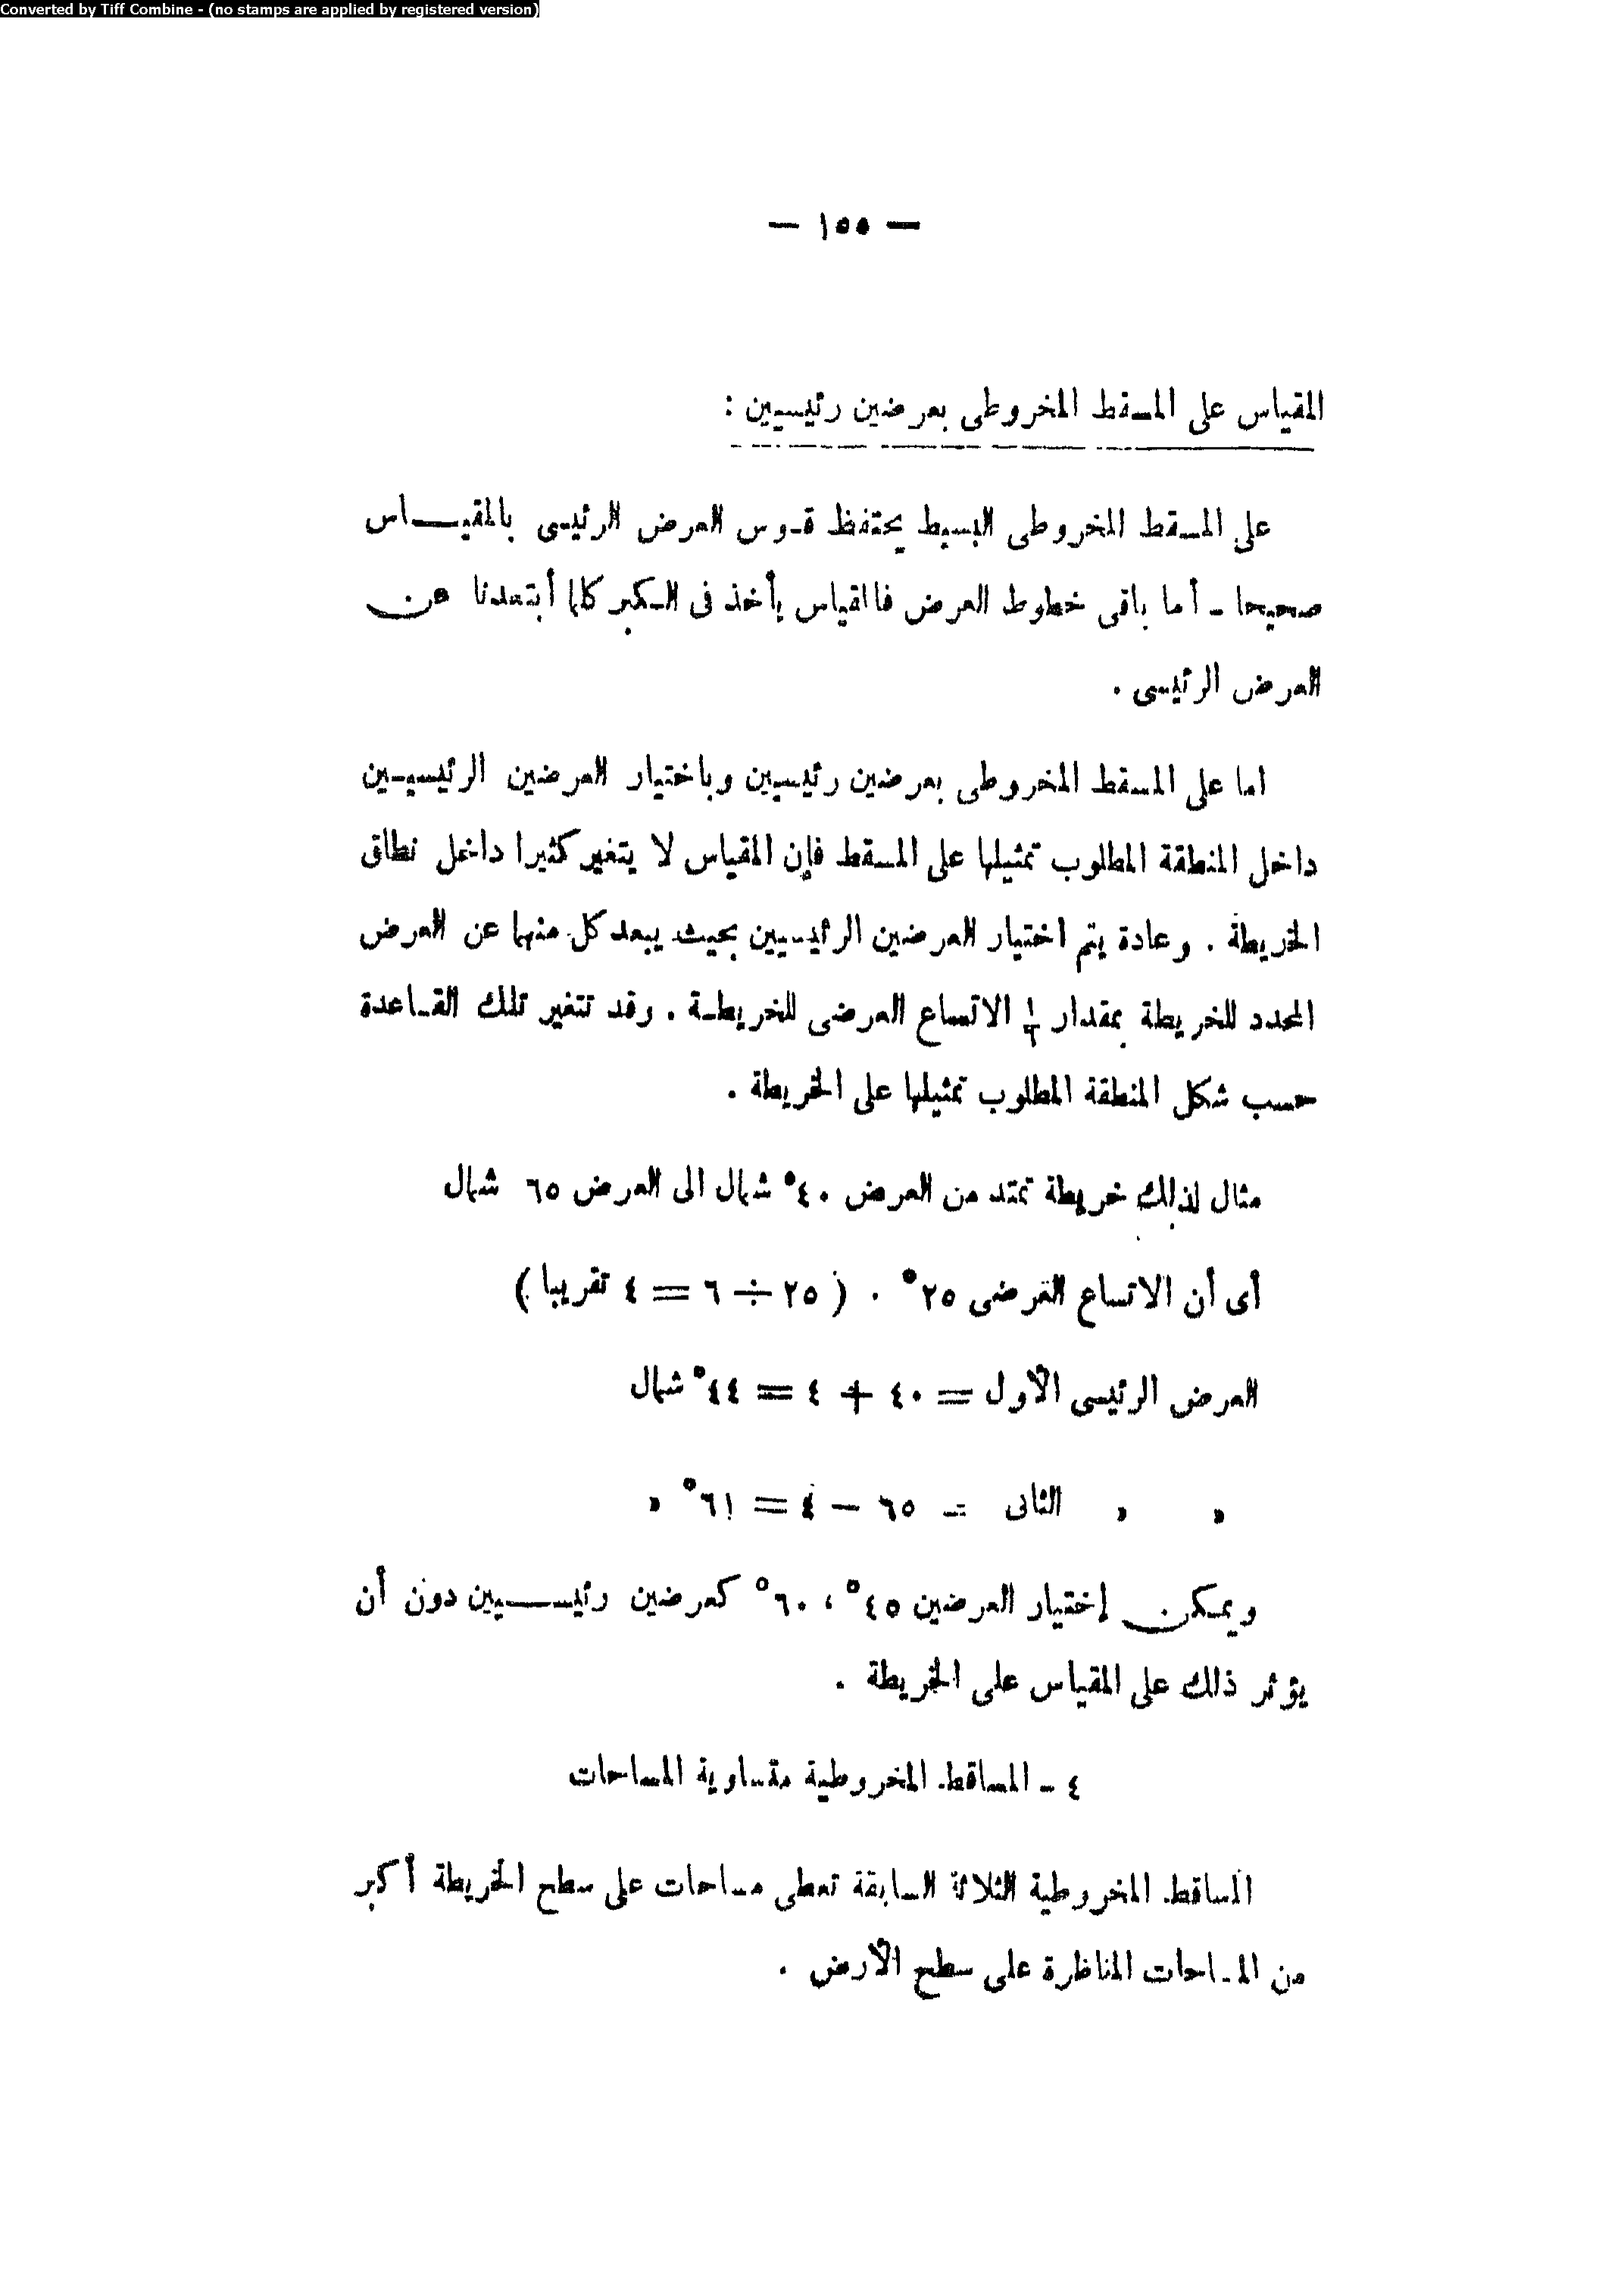 Converted by Tiff Combine - (no stamps are applied by registered version)
— ١٥٥ —
المقياس على المسقط المخروطى بعرضين رئيسيين :
على المسقط المخروطى البسيط يحتفظ قوس العرض الرئيسى بالمقيـــاس
صحيحا ـ أما باقى خطوط العرض فالقياس يأخذ فى الكبر كلما أبتعدنا عن
العرض الرئيسى .
اما على المسقط المخروطى بعرضين رئيسيين وباختيار العرضين الرئيسيين
داخل المنطقة المطلوب تمثيلها على المسقط فإن المقياس لا يتغير كثيرا داخل نطاق
الخريطة . وعادة يتم اختيار العرضين الرئيسيين بحيث يبعد كل منهما عن العرض
المحدد للخريطة بمقدار ١/٦ الاتساع العرضى للخريطة . وقد تتغير تلك القاعدة
حسب شكل المنطقة المطلوب تمثيلها على الخريطة .
مثال لذلك خريطة تمتد من العرض ٤٠° شمال الى العرض ٦٥ شمال
أى أن الاتساع العرضى ٢٥° . ( ٢٥ ÷ ٦ = ٤ تقريبا )
العرض الرئيسى الأول = ٤٠ + ٤ = ٤٤° شمال
« « الثانى = ٦٥ — ٤ = ٦١° «
ويمكن إختيار العرضين ٤٥° ، ٦٠° كعرضين رئيســـيين دون أن
يؤثر ذلك على المقياس على الخريطة .
٤ ـ المساقط المخروطية متساوية المساحات
المساقط المخروطية الثلاثة السابقة تعطى مساحات على سطح الخريطة أكبر
من المساحات المناظرة على سطح الأرض .